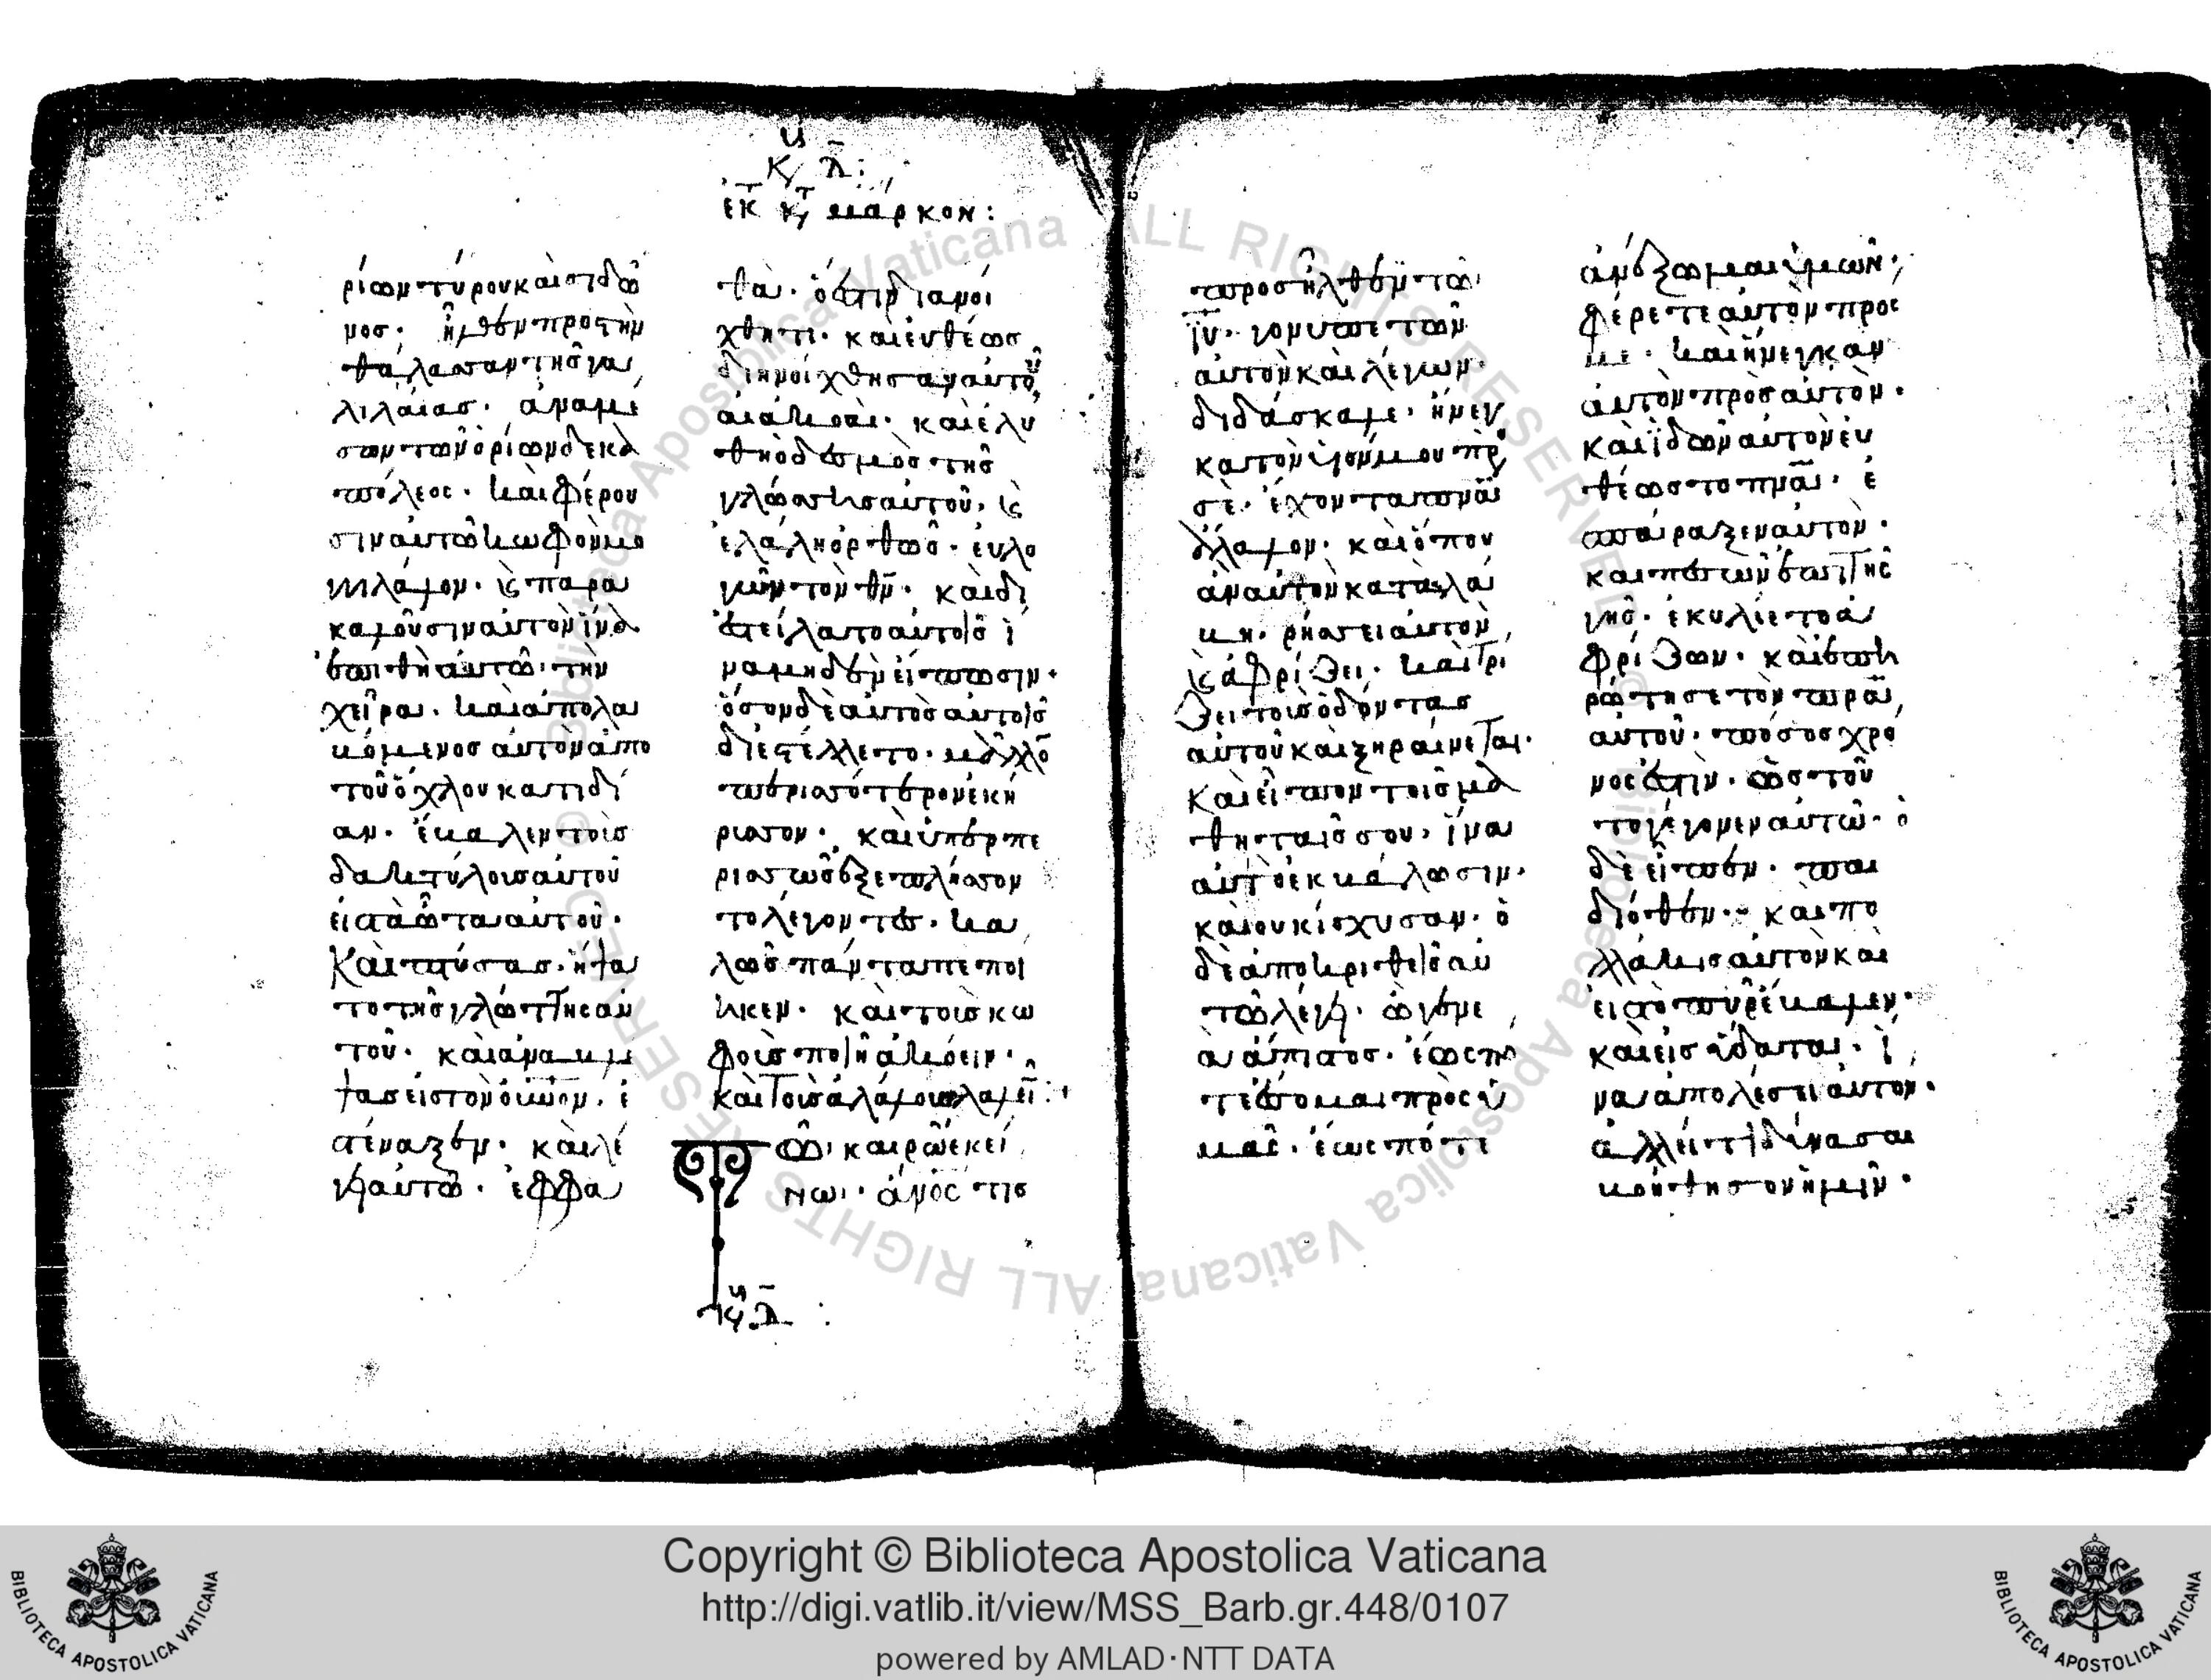 ἐκ τ κτ μάρκον:
ρίων τύρου καὶ σιδῶ
νος· ἦλθεν πρὸς τὴν
θάλασσαν τῆς γα
λιλαίας· ἀναμε
σον τῶν ὁρίων δεκα
πόλεος· καὶ φέρου
σιν αὐτῶ κωφὸν μο
γιλάλον· παρα
καλοῦσιν αὐτὸν ἵνα
ἐπιθῆ αὐτῶ τὴν
χεῖρα· καὶ ἀπολα
βόμενος αὐτὸν ἀπο
τοῦ ὄχλου κατιδί
αν· ἔβαλεν τοὺς
δακτύλους αὐτοῦ
εἰς τὰ ὦτα αὐτοῦ·
Καὶ πτύσας ἥψα
το τῆς γλώττης αὐ
τοῦ· καὶ ἀναβλέ
ψας εἰς τὸν οὐνον· ἐ
στέναξεν· καὶ λέ
γει αὐτῶ· ἐφφα
θὰ· ὅ ἐστιν διανοί
χθητι· καὶ εὐθέως
διηνοίχθησαν αὐτοῦ
αἱ ἀκοαὶ· καὶ ἐλύ
θη ὁ δεσμὸς τῆς
γλώσσης αὐτοῦ,
ἐλάλη ὀρθῶς· εὐλο
γῶν τὸν θν· καὶ δι
εστείλατο αὐτοῖς ἵ
να μηδὲν εἴπωσιν·
ὅσον δὲ αὐτὸς αὐτοῖς
διεστέλλετο· μᾶλλο
περισσότερον ἐκή
ρυσσον· καὶ ὑπὲρπε
ρισσῶς ἐξεπλήσσον
το λέγοντες· κα
λῶς πάντα πεποί
ηκεν· καὶ τοὺς κω
φοὺς ποιῆ ἀκούειν·
καὶ τοὺς ἀλάλους λαλεῖ:+
Τῶ καιρῶ ἐκεί
νω· ἀνος τις
προσῆλθεν τῶ
ιυ· γονυπετῶν
αὐτὸν καὶ λέγων·
διδάσκαλε· ἤνεγ
κα τὸν υἱόν μου πρὸ
σὲ· ἔχοντα πνα
ἄλαλον· καὶ ὅπου
ἂν αὐτὸν καταλά
βη· ρήσσει αὐτὸν,
ἀφρίζει· καὶ τρί
ζει τοὺς ὀδόντας
αὐτοῦ καὶ ξηραίνεται·
Καὶ εἶπον τοῖς μα
θηταῖς σου, ἵνα
αὐτὸ ἐκβάλωσιν·
καὶ οὐκ ἴσχυσαν· ὁ
δὲ ἀποκριθεὶς αὐ
τῶ λέγει· ὦ γενε
ὰ ἄπιστος· ἕως πο
τε ἔσομαι πρὸς ὑ
μᾶς· ἕως πότε
ἀνέξωμαι ὑμῶν·
φέρετε αὐτὸν προς
με· καὶ ἤνεγκαν
αὐτὸν πρὸς αὐτὸν·
καὶ ἰδὼν αὐτὸν εὐ
θέως το πνα· ἐ
σπάραξεν αὐτὸν·
καὶ πεσὼν ἐπὶ τῆς
γῆς· ἐκυλίετο ἀ
φρίζων· καὶ ἐπη
ρώτησε τὸν πρα
αὐτοῦ· πόσος χρό
νος ἐστὶν· ὡς τοῦ
το γέγονεν αὐτῶ· ὁ
δὲ εἶπεν· παι
διόθεν· καὶ πο
λλάκις αὐτὸν καὶ
εἰς τὸ πῦρ ἔβαλεν·
καὶ εἰς ὕδατα· ἵ
να ἀπολέσει αὐτον·
ἀλλ εἴ τι δύνασαι
βοήθησον ἡμῖν·
Copyright © Biblioteca Apostolica Vaticana
http://digi.vatlib.it/view/MSS_Barb.gr.448/0107
powered by AMLAD·NTT DATA
BIBLIOTECA APOSTOLICA VATICANA
BIBLIOTECA APOSTOLICA VATICANA